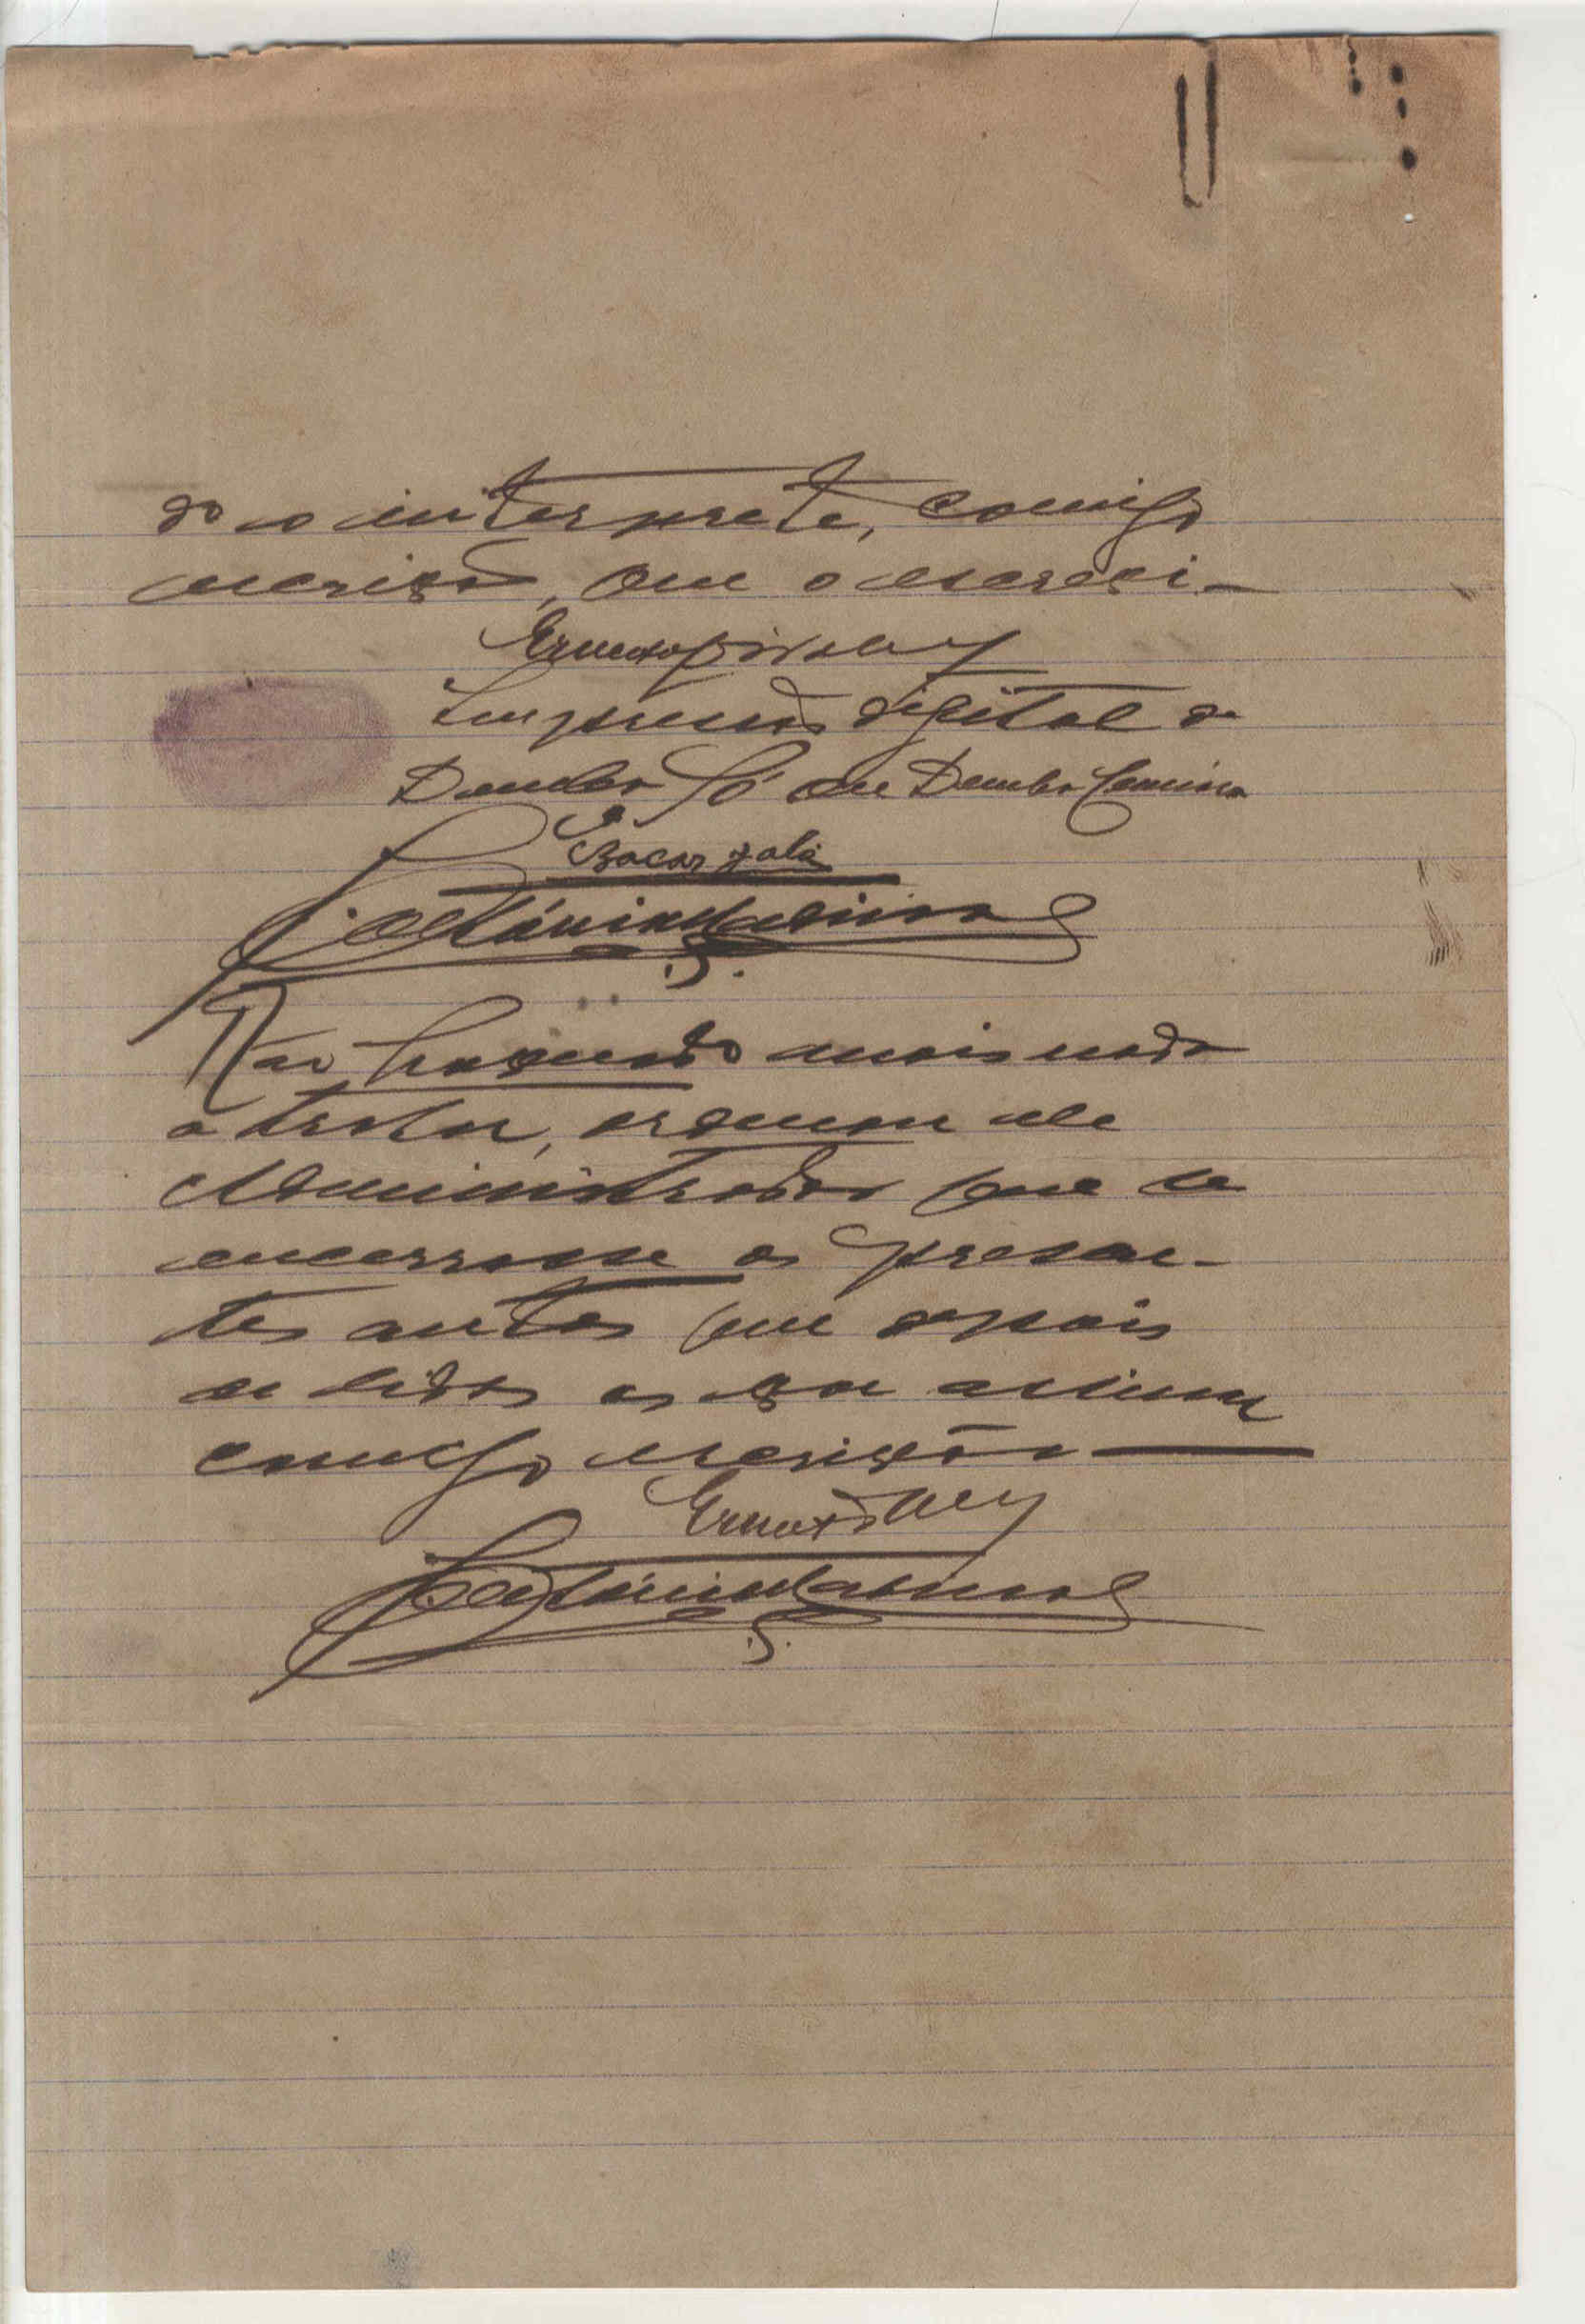 do o interprete, comigo
escrivão, que o escrevi-
Impressão digital de
Demba Só ou Demba
Bacar Jaló
Não havendo mais nada
a tratar, ordenou ele
Administrador que se
encerrasse os presen-
tes autos que depois
de lidos os vae assinar
comigo escrivão